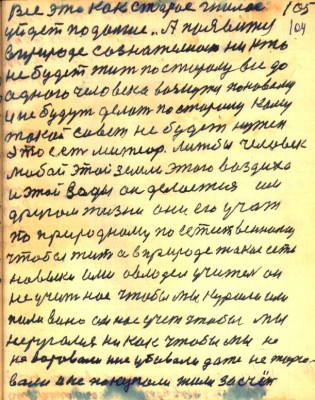 Все это как старое гнилое 105
уйдет подотне.. А появитц 104
в природе сознателнои никто
не будет жит постарому все до
одного человека возмутц поновому
и не будут делат постарому кому
такой совет не будет нужен
это ест милеор. лижбы человек
любой этой земли этого воздуха
и этой воды он делается им
другом жизни они его учат
по природному поестественному
чтобы жит а в природе такое есть
навыки ими овлодел учител он
не учит нас чтобы мы курили или
пили вино он нас учет чтобы мы
неругалися никак чтобы мы не
не воровали ние убивали даже не торго
вали а не покупали жили засчёт